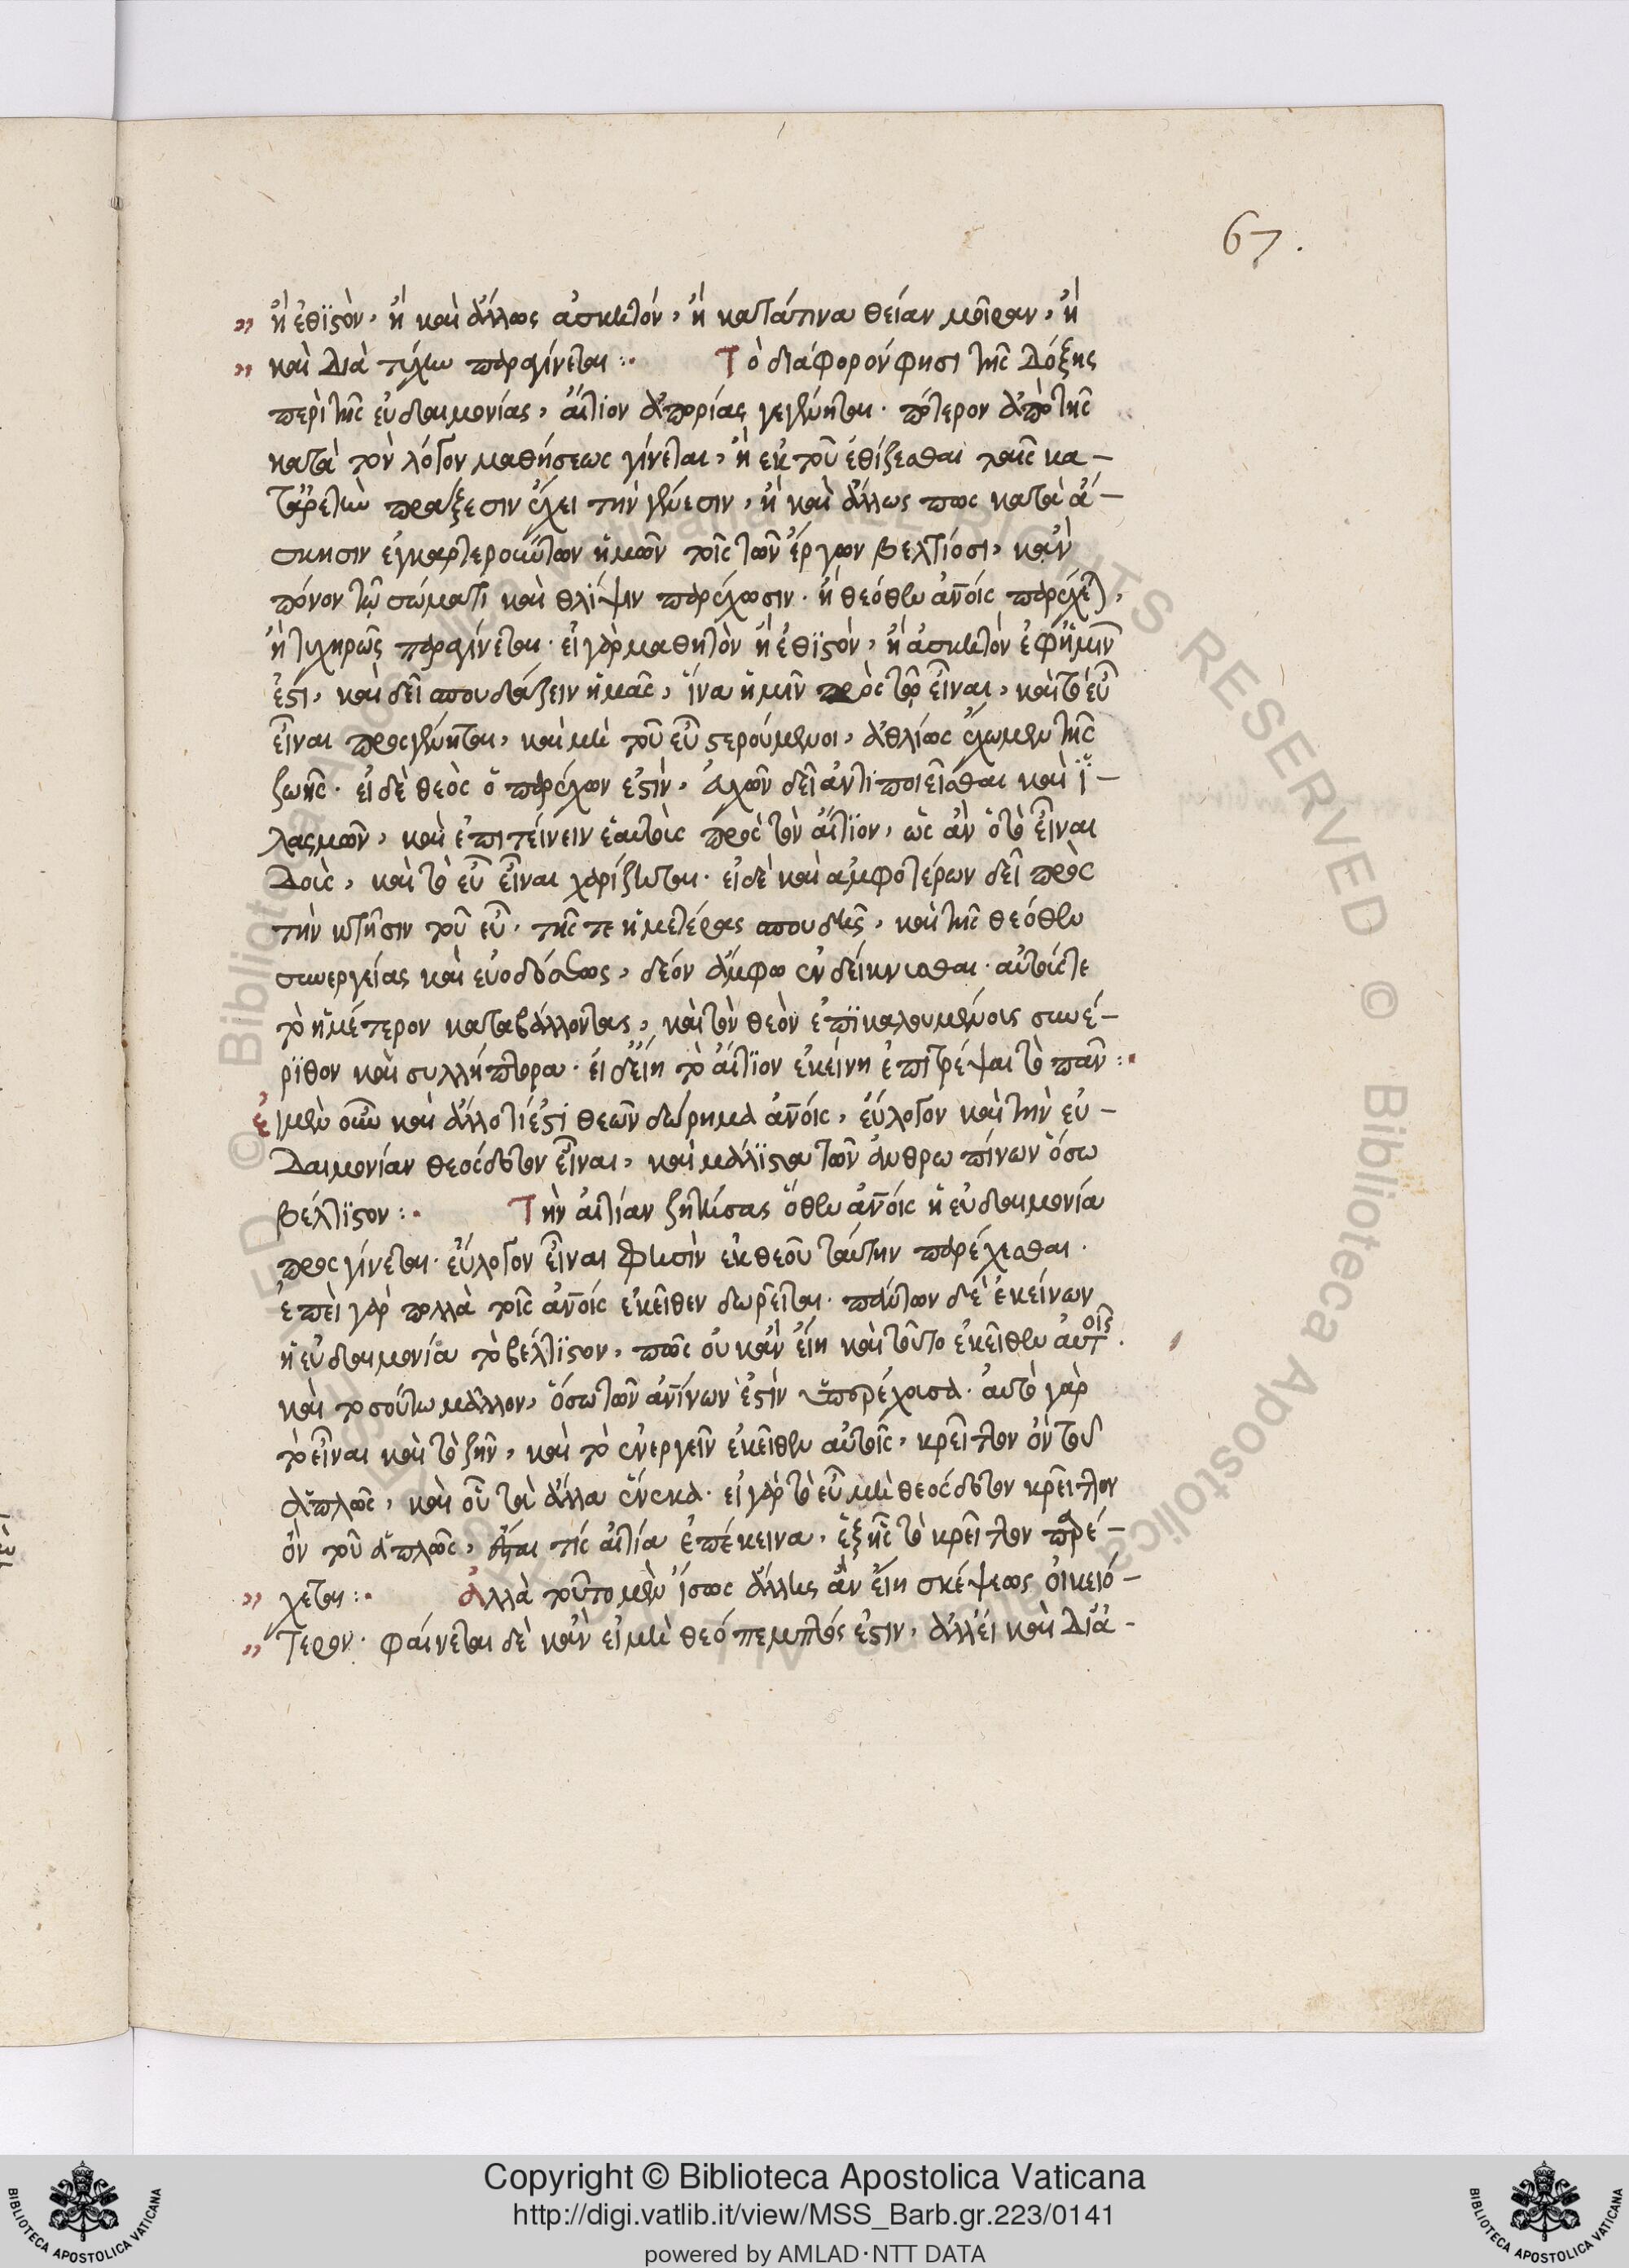 67.
ἢ ἐθιστὸν, ἢ καὶ ἄλλως ἀσκητόν, ἢ κατά τινα θείαν μοῖραν, ἢ
καὶ διὰ τύχην παραγίνεται :· Τὸ διάφορόν φησι τῆς δόξης
περὶ τῆς εὐδαιμονίας, αἴτιον ἀπορίας γεγένηται. πότερον ἀπὸ τῆς
κατὰ τὸν λόγον μαθήσεως γίνεται, ἢ ἐκ τοῦ ἐθίζεσθαι ταῖς κα–
τἀρετὴν πράξεσιν ἔχει τὴν γένεσιν, ἢ καὶ ἄλλως πως κατὰ ἄ–
σκησιν ἐγκαρτερούντων ἡμῶν τοῖς τῶν ἔργων βελτίοσι, κἂν
πόνον τῷ σώματι καὶ θλίψιν παρέχωσιν. ἢ θεόθεν ἀνοις παρέχεται,
ἢ τυχηρῶς παραγίνεται. εἰ γὰρ μαθητὸν ἢ ἐθιστὸν, ἢ ἀσκητόν ἐφἡμῖν
ἐστι, καὶ δεῖ σπουδάζειν ἡμᾶς, ἵνα ἡμῖν πρὸς τῷ εἶναι, καὶ τὸ εὖ
εἶναι προσγένηται, καὶ μὴ τοῦ εὖ στερούμενοι, ἀθλίως ἔχωμεν τῆς
ζωῆς. εἰ δὲ θεὸς ὁ παρέχων ἐστὶν, εὐχῶν δεῖ ἀντιποιεῖσθαι καὶ ἱ–
λασμῶν, καὶ ἐπιτείνειν ἑαυτοὺς πρὸς τὸν αἴτιον, ὡς ἂν ὁ τὸ εἶναι
δοὺς, καὶ τὸ εὖ εἶναι χαρίζηται. εἰ δὲ καὶ ἀμφοτέρων δεῖ πρὸς
τὴν κτῆσιν τοῦ εὖ. τῆς τε ἡμετέρας σπουδῆς, καὶ τῆς θεόθεν
συνεργείας καὶ εὐοδώσεως, δέον ἄμφω ἐνδείκνυσθαι. αὐτούς τε
τὸ ἡμέτερον καταβάλλοντας, καὶ τὸν θεὸν ἐπικαλουμένοις συνέ–
ριθον καὶ συλλήπτορα. εἰ δ εἴη τὸ αἴτιον ἐκείνῃ ἐπιτρέψαι τὸ πᾶν :·
Εἰ μὲν οὖν καὶ ἄλλο τί ἐστι θεῶν δώρημα ἀνοις, εὔλογον καὶ τὴν εὐ–
δαιμονίαν θεόσδοτον εἶναι, καὶ μάλιστα τῶν ἀνθρωπίνων ὅσῳ
βέλτιστον :· Τὴν αἰτίαν ζητήσας ὅθεν ἀνοις ἡ εὐδαιμονία
προσγίνεται. εὔλογον εἶναι φησὶν ἐκ θεοῦ ταύτην παρέχεσθαι.
ἐπεὶ γὰρ πολλὰ τοῖς ἀνοις ἐκεῖθεν δωρεῖται. πάντων δὲ ἐκείνων
ἡ εὐδαιμονία τὸ βέλτιστον, πῶς οὐκ ἂν εἴη καὶ τοῦτο ἐκεῖθεν αὐτοῖς.
καὶ τοσούτῳ μᾶλλον, ὅσῳ τῶν ἀνίνων ἐστὶν ὑπερέχουσα. αὐτὸ γὰρ
τὸ εἶναι καὶ τὸ ζῆν, καὶ τὸ ἐνεργεῖν ἐκεῖθεν αὐτοῖς, κρεῖττον ὂν τοῦ
ἁπλῶς, καὶ οὗ τὰ ἄλλα ἕνεκα. εἰ γὰρ τὸ εὖ μὴ θεόσδοτον κρεῖττον
ὂν τοῦ ἁπλῶς, τίς αἰτία ἐπέκεινα, ἐξ ἧς τὸ κρεῖττον παρέ–
χεται :· Ἀλλὰ τοῦτο μὲν ἴσως ἄλλης ἂν εἴη σκέψεως οἰκειό–
τερον. φαίνεται δὲ κἂν εἰ μὴ θεόπεμπτός ἐστιν, ἀλλεί καὶ διἀ–
Copyright © Biblioteca Apostolica Vaticana
http://digi.vatlib.it/view/MSS_Barb.gr.223/0141
powered by AMLAD·NTT DATA